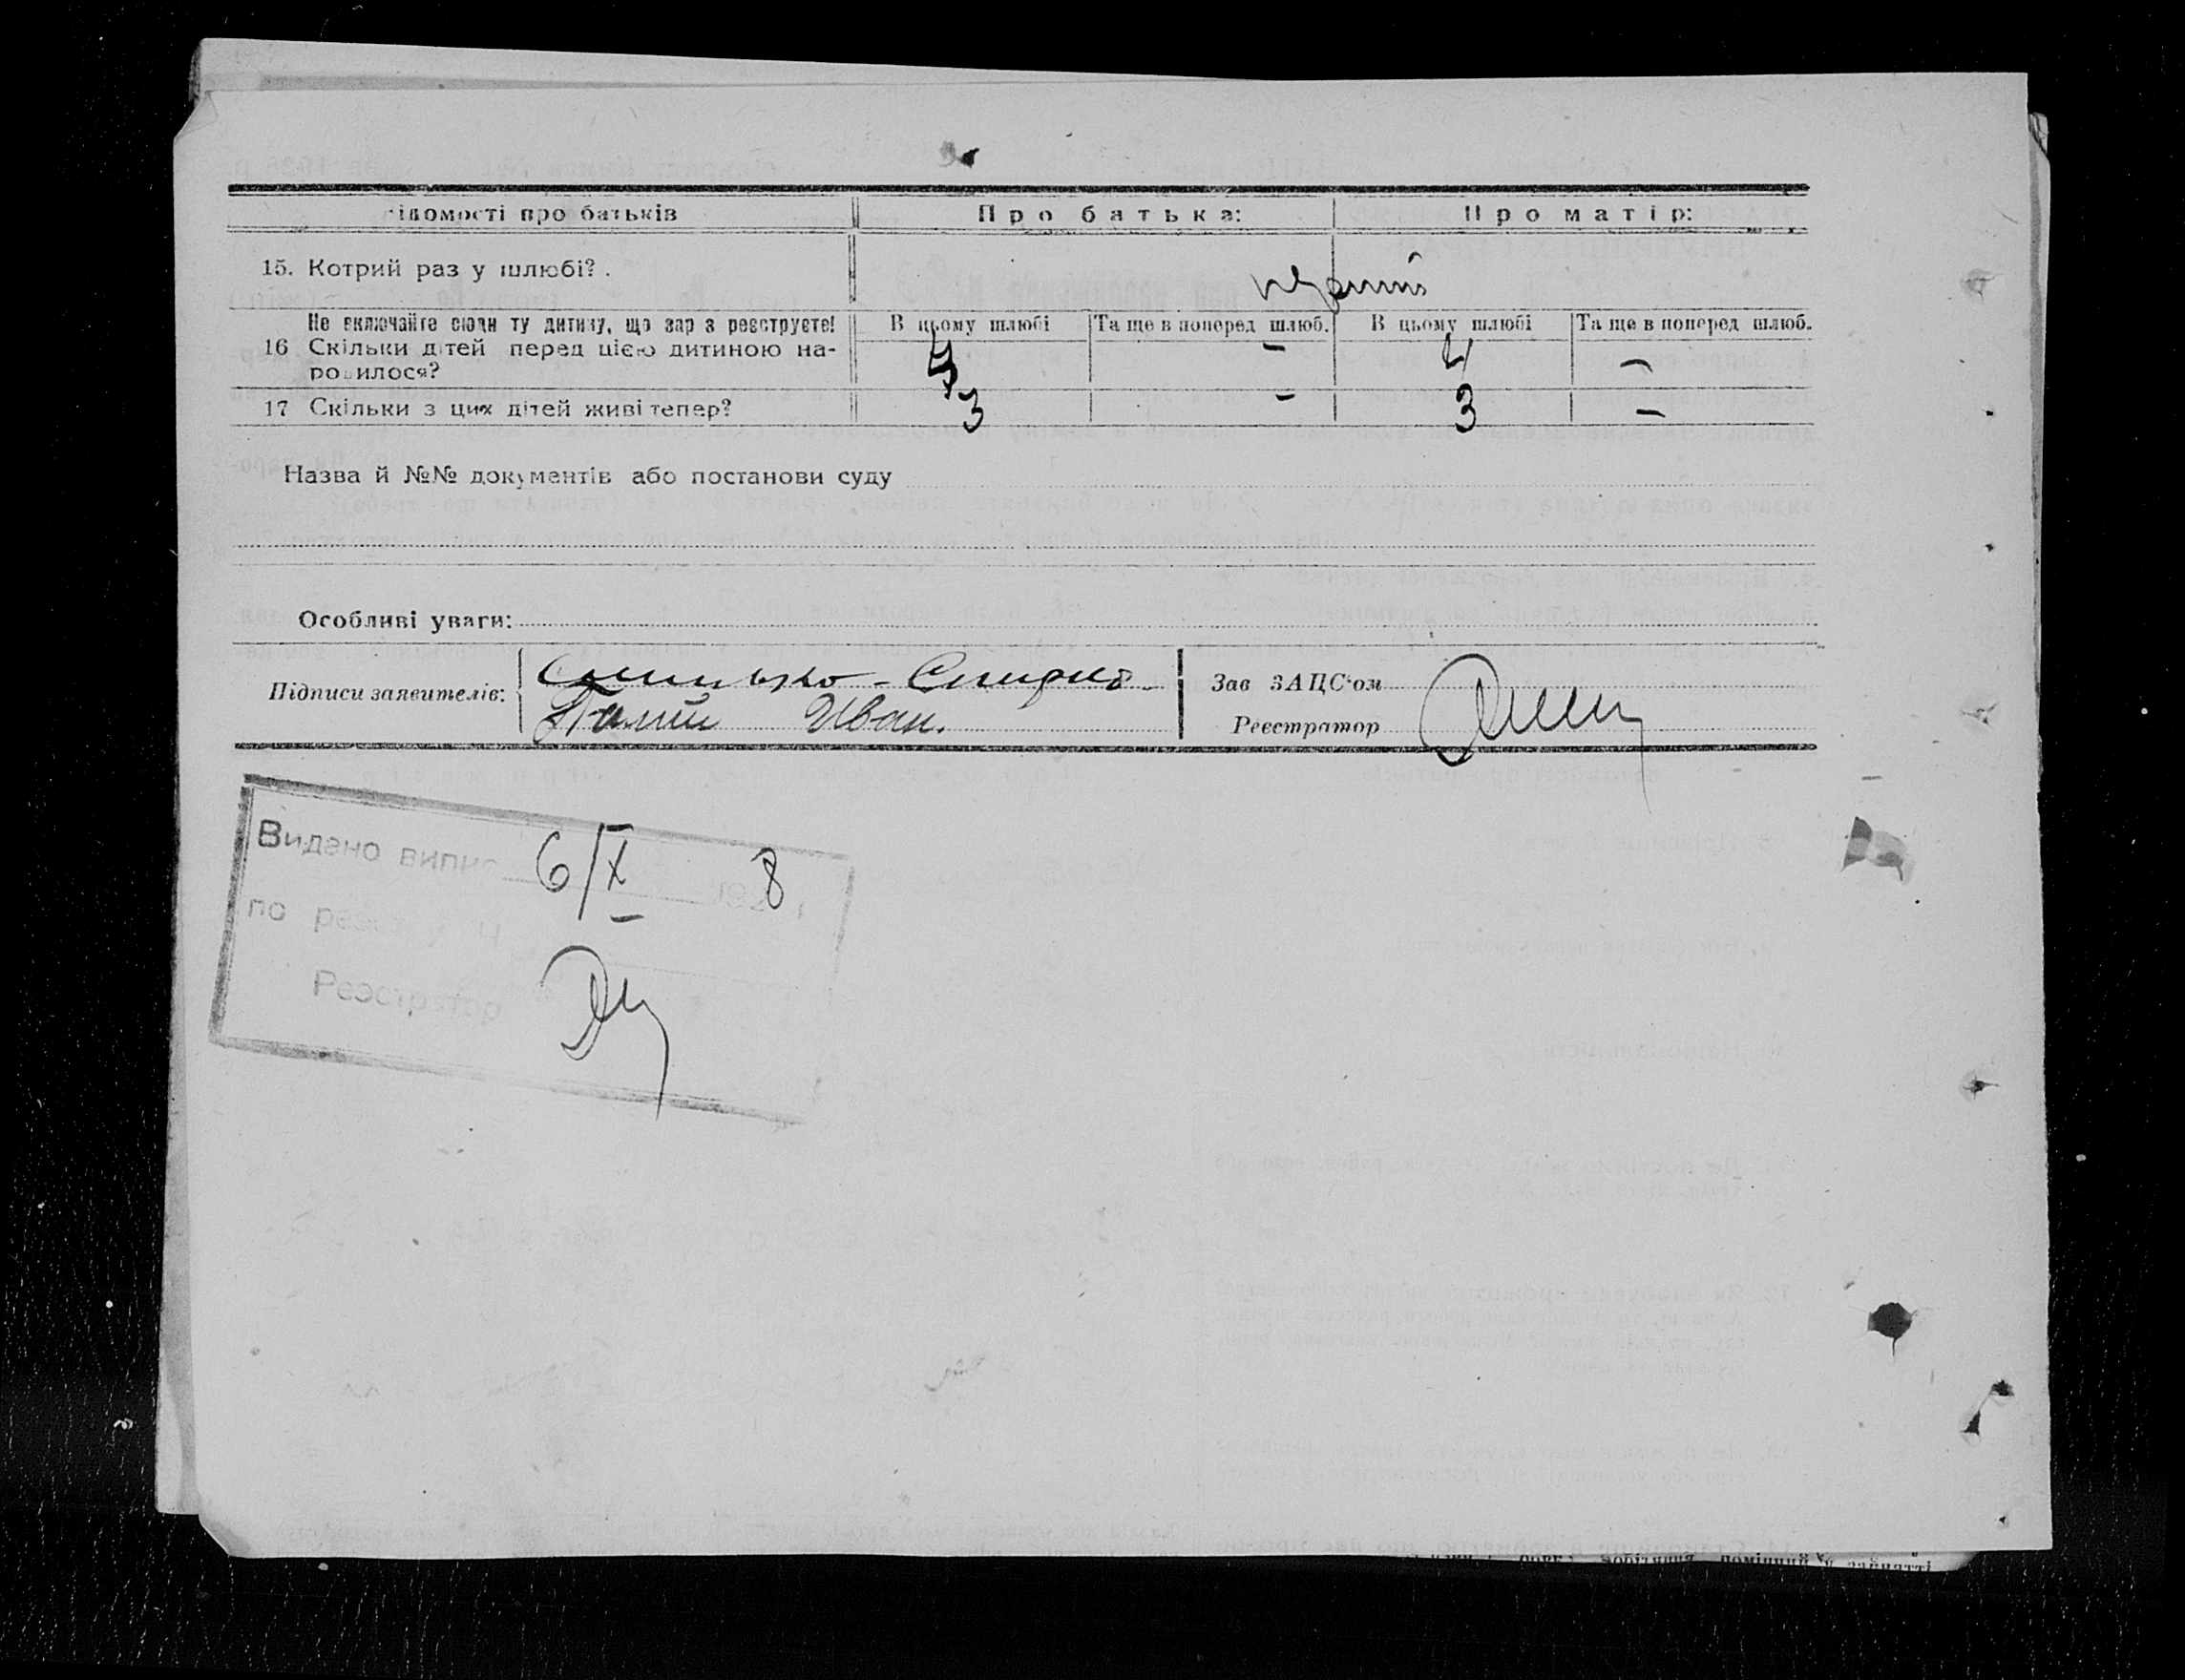 ідомості про батьків Про батька: Про матір:
15. Котрий раз у шлюбі?. перший
Не включайте сюди ту дитину, що зар з реєструєте! В цьому шлюбі Та ще в поперед шлюб. В цьому шлюбі Та ще в поперед шлюб.
16 Скільки дітей перед цією дитиною на- 4 – 4 –
родилося?
17 Скільки з цих дітей живі тепер? 3 – 3 –
Назва й №№ документів або постанови суду
Особливі уваги:
Підписи заявителів: Зав ЗАЦС'ом
Палій Иван. Реєстратор
Видано випис 6/X 1928
по реєстру Ч
Реєстратор